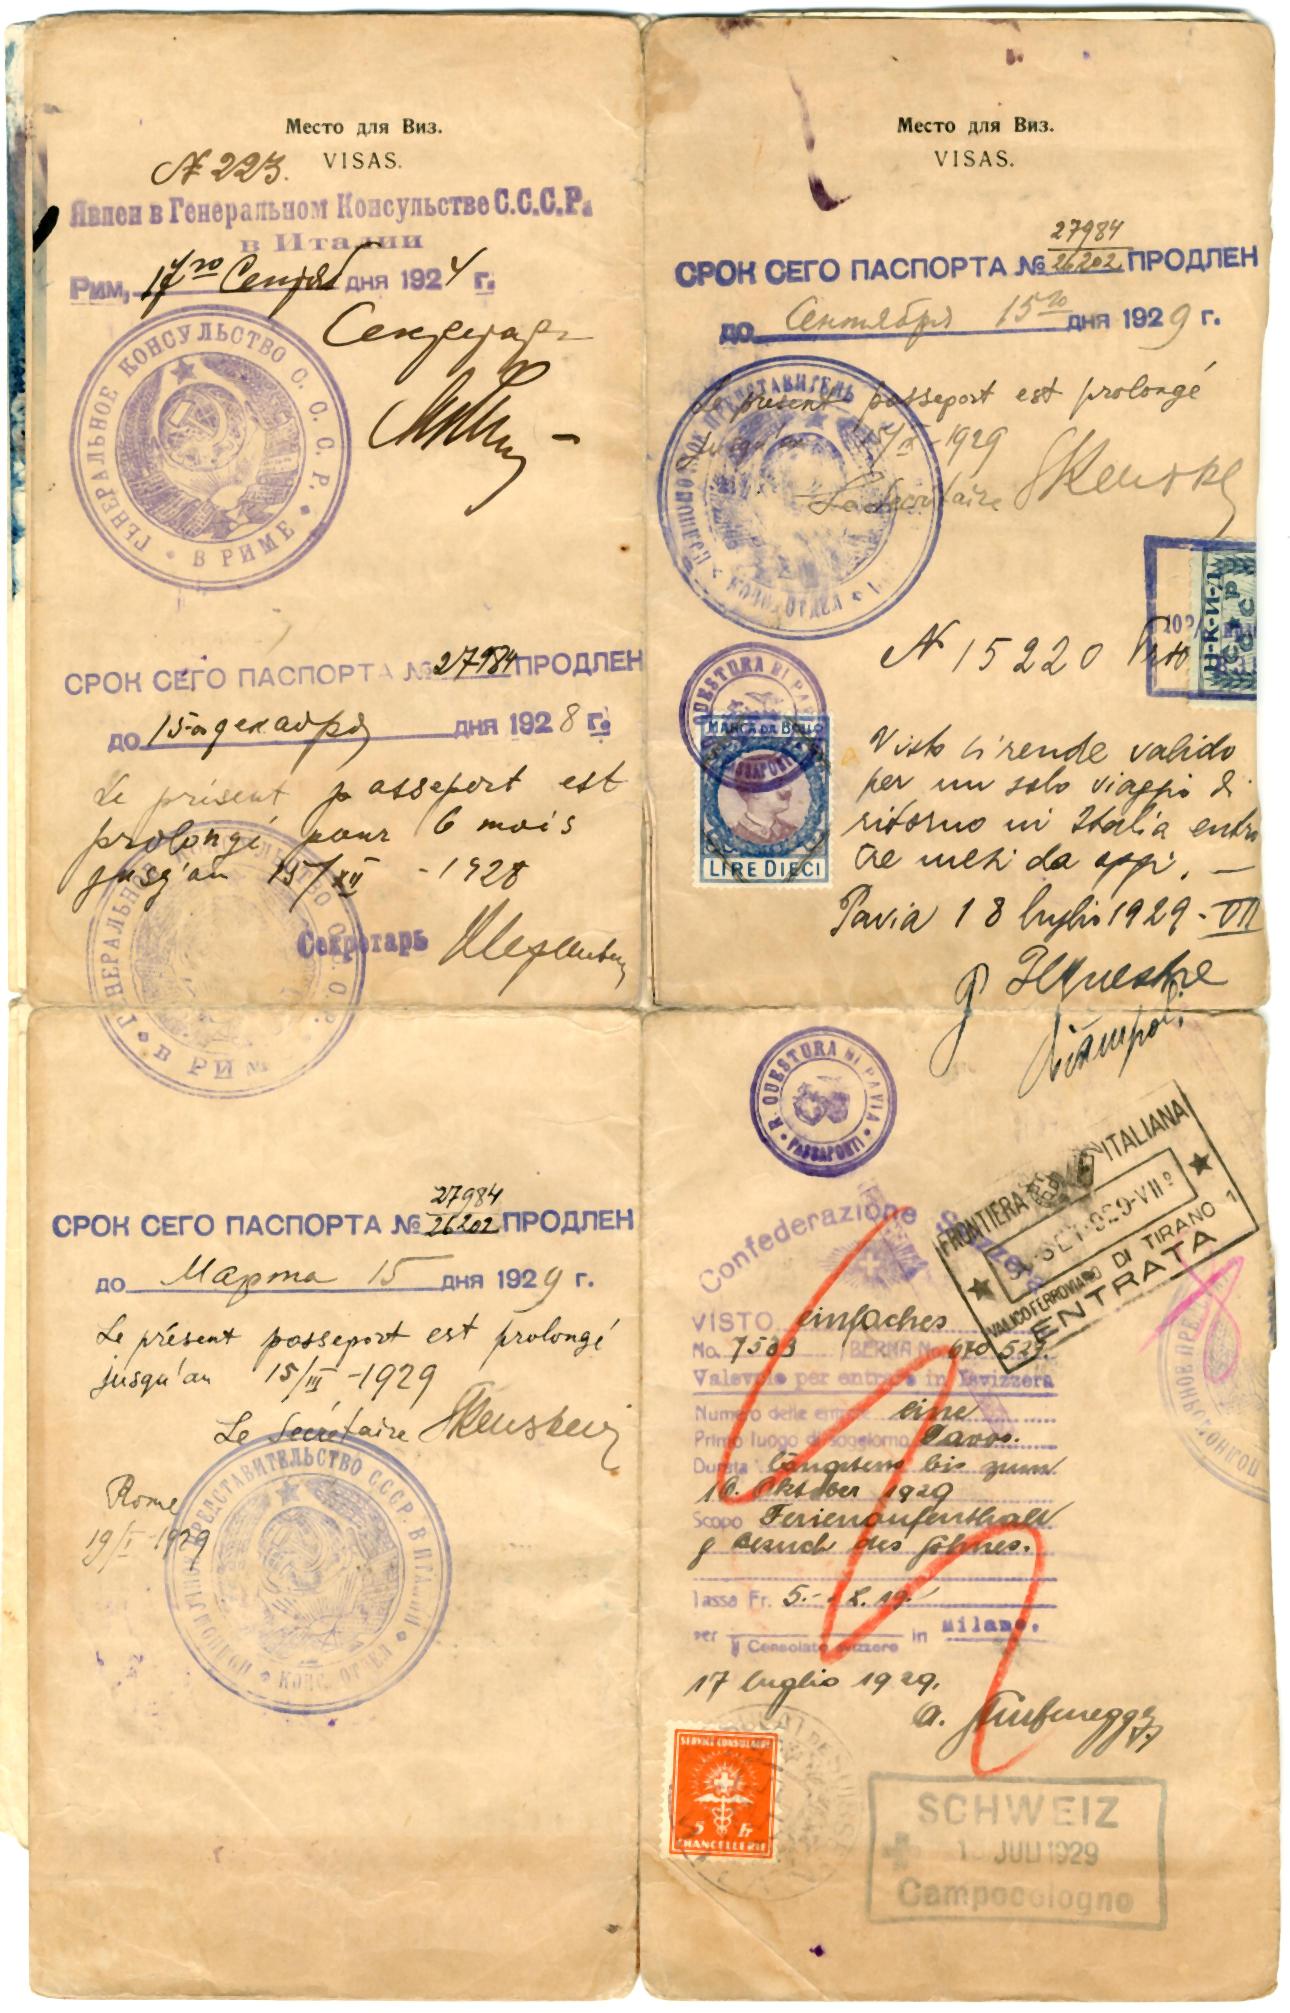 Место для Виз.
VISAS.
№ 223.
Явлен в Генеральном Консульстве С.С.С.Р.
в Италии
Рим, 17го Сентяб дня 1924 г.
Секретарь
ГЕНЕРАЛЬНОЕ КОНСУЛЬСТВО С. С. С. Р.
В РИМЕ
СРОК СЕГО ПАСПОРТА № 27984 ПРОДЛЕН
до 15-го декабря дня 1928 г.
Le présent passeport est
prolongé pour 6 mois
jusqu'au 15/XII - 1928
Секретарь
ГЕНЕРАЛЬНОЕ КОНСУЛЬСТВО С. С. С. Р.
В РИМ
27984
СРОК СЕГО ПАСПОРТА № 26202 ПРОДЛЕН
до Марта 15 дня 1929 г.
Le présent passeport est prolongé
jusqu'au 15/III - 1929
Le Secrétaire
Rome
19/I - 1929
ПОЛНОМОЧНОЕ ПРЕДСТАВИТЕЛЬСТВО СССР. В ИТАЛИИ
КОНС. ОТДЕЛ
Место для Виз.
VISAS.
27984
СРОК СЕГО ПАСПОРТА № 26202 ПРОДЛЕН
до Сентября 15го дня 1929 г.
Le présent passeport est prolongé
15/IX - 1929
Le Secrétaire
КОНС. ОТДЕЛ
Н-К-И-Д
СССР
N 15220
R. QUESTURA DI PAVIA
PASSAPORTI
MARCA DA BOLLO
LIRE DIECI
Visto si rende valido
per un solo viaggio di
ritorno in Italia entro
tre mesi da oggi. —
Pavia 18 luglio 1929 - VII
P. Il Questore
R. QUESTURA DI PAVIA
PASSAPORTI
FRONTIERA ITALIANA
SET. 929-VII°
VALICO FERROVIARIO DI TIRANO 1
ENTRATA
Confederazione Svizzera
VISTO einfaches
No. 7533 BERNA No. 670 527.
Valevole per entrare in Isvizzera
Numero delle entrate eine
Primo luogo di soggiorno Davos.
Durata längstens bis zum
10. Oktober 1929
Scopo Ferienaufenthalt
& Besuch des Sohnes.
Tassa Fr. 5.-
per Il Consolato svizzero in Milano.
17 luglio 1929.
SERVICE CONSULAIRE
5 Fr
CHANCELLERIE
SCHWEIZ
JULI 1929
Campocologno